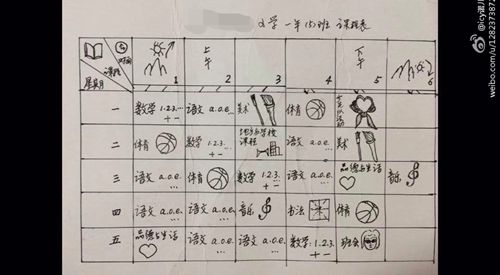 小学一年(5)班 课程表
时间
课程
星期
上午
下午
1 2 3 4 5 6
一 数学 1.2.3... + - 语文 a.o.e... 美术 体育 少先队活动
二 体育 数学 1.2.3... + - 地方与学校课程 语文 a.o.e... 美术
三 语文 a.o.e... 体育 数学 1.2.3... + - 语文 a.o.e... 品德与生活 音乐
四 语文 a.o.e... 语文 a.o.e... 音乐 书法 体育
五 品德与生活 语文 a.o.e... 语文 a.o.e... 数学 1.2.3... + - 班会
weibo.com/u/1282373872